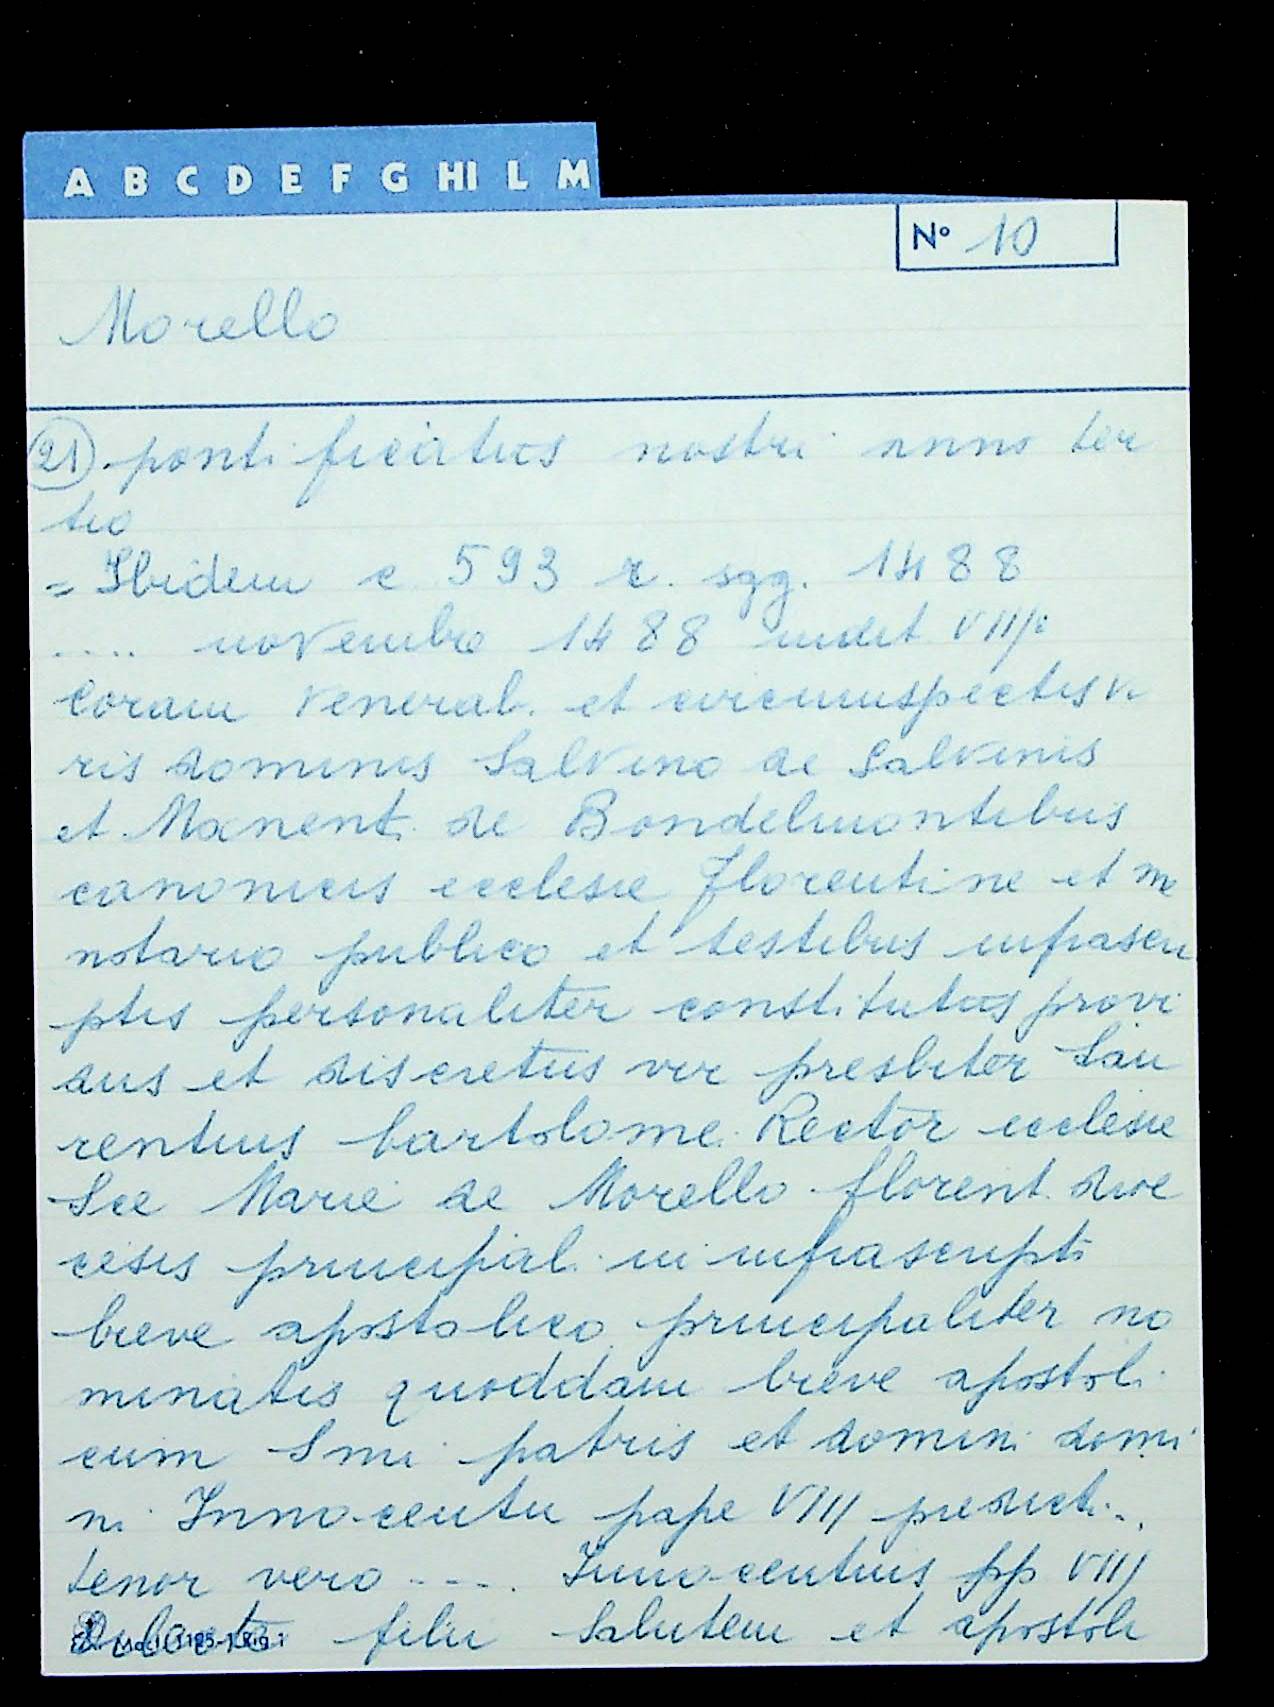 A B C D E F G HI L M
Nº 10
Morello
(21) pontificatus nostri anno ter
tio
= Ibidem c 593 r. sgg. 1488
.... novembre 1488 indit VIIJ:
Coram Venerab. et circumspectis vi
ris dominis Salvino de Salvinis
et Manenti de Bondelmontibus
canonicis ecclesie florentine et me
notario publico et testibus infrascri
ptis personaliter constitutus provi
dus et discretus vir presbiter Lau
rentius bartolomei Rector ecclesie
Sce Marie de Morello florent. dioe
cesis principal. in infrascripti
breve apostolico principaliter no
minatis quoddam breve apostoli
cum Smi patris et domini domi
ni Innocentii pape VIIJ predicti..
tenor vero .... Innocentius pp VIIJ
filii Salutem et apostoli